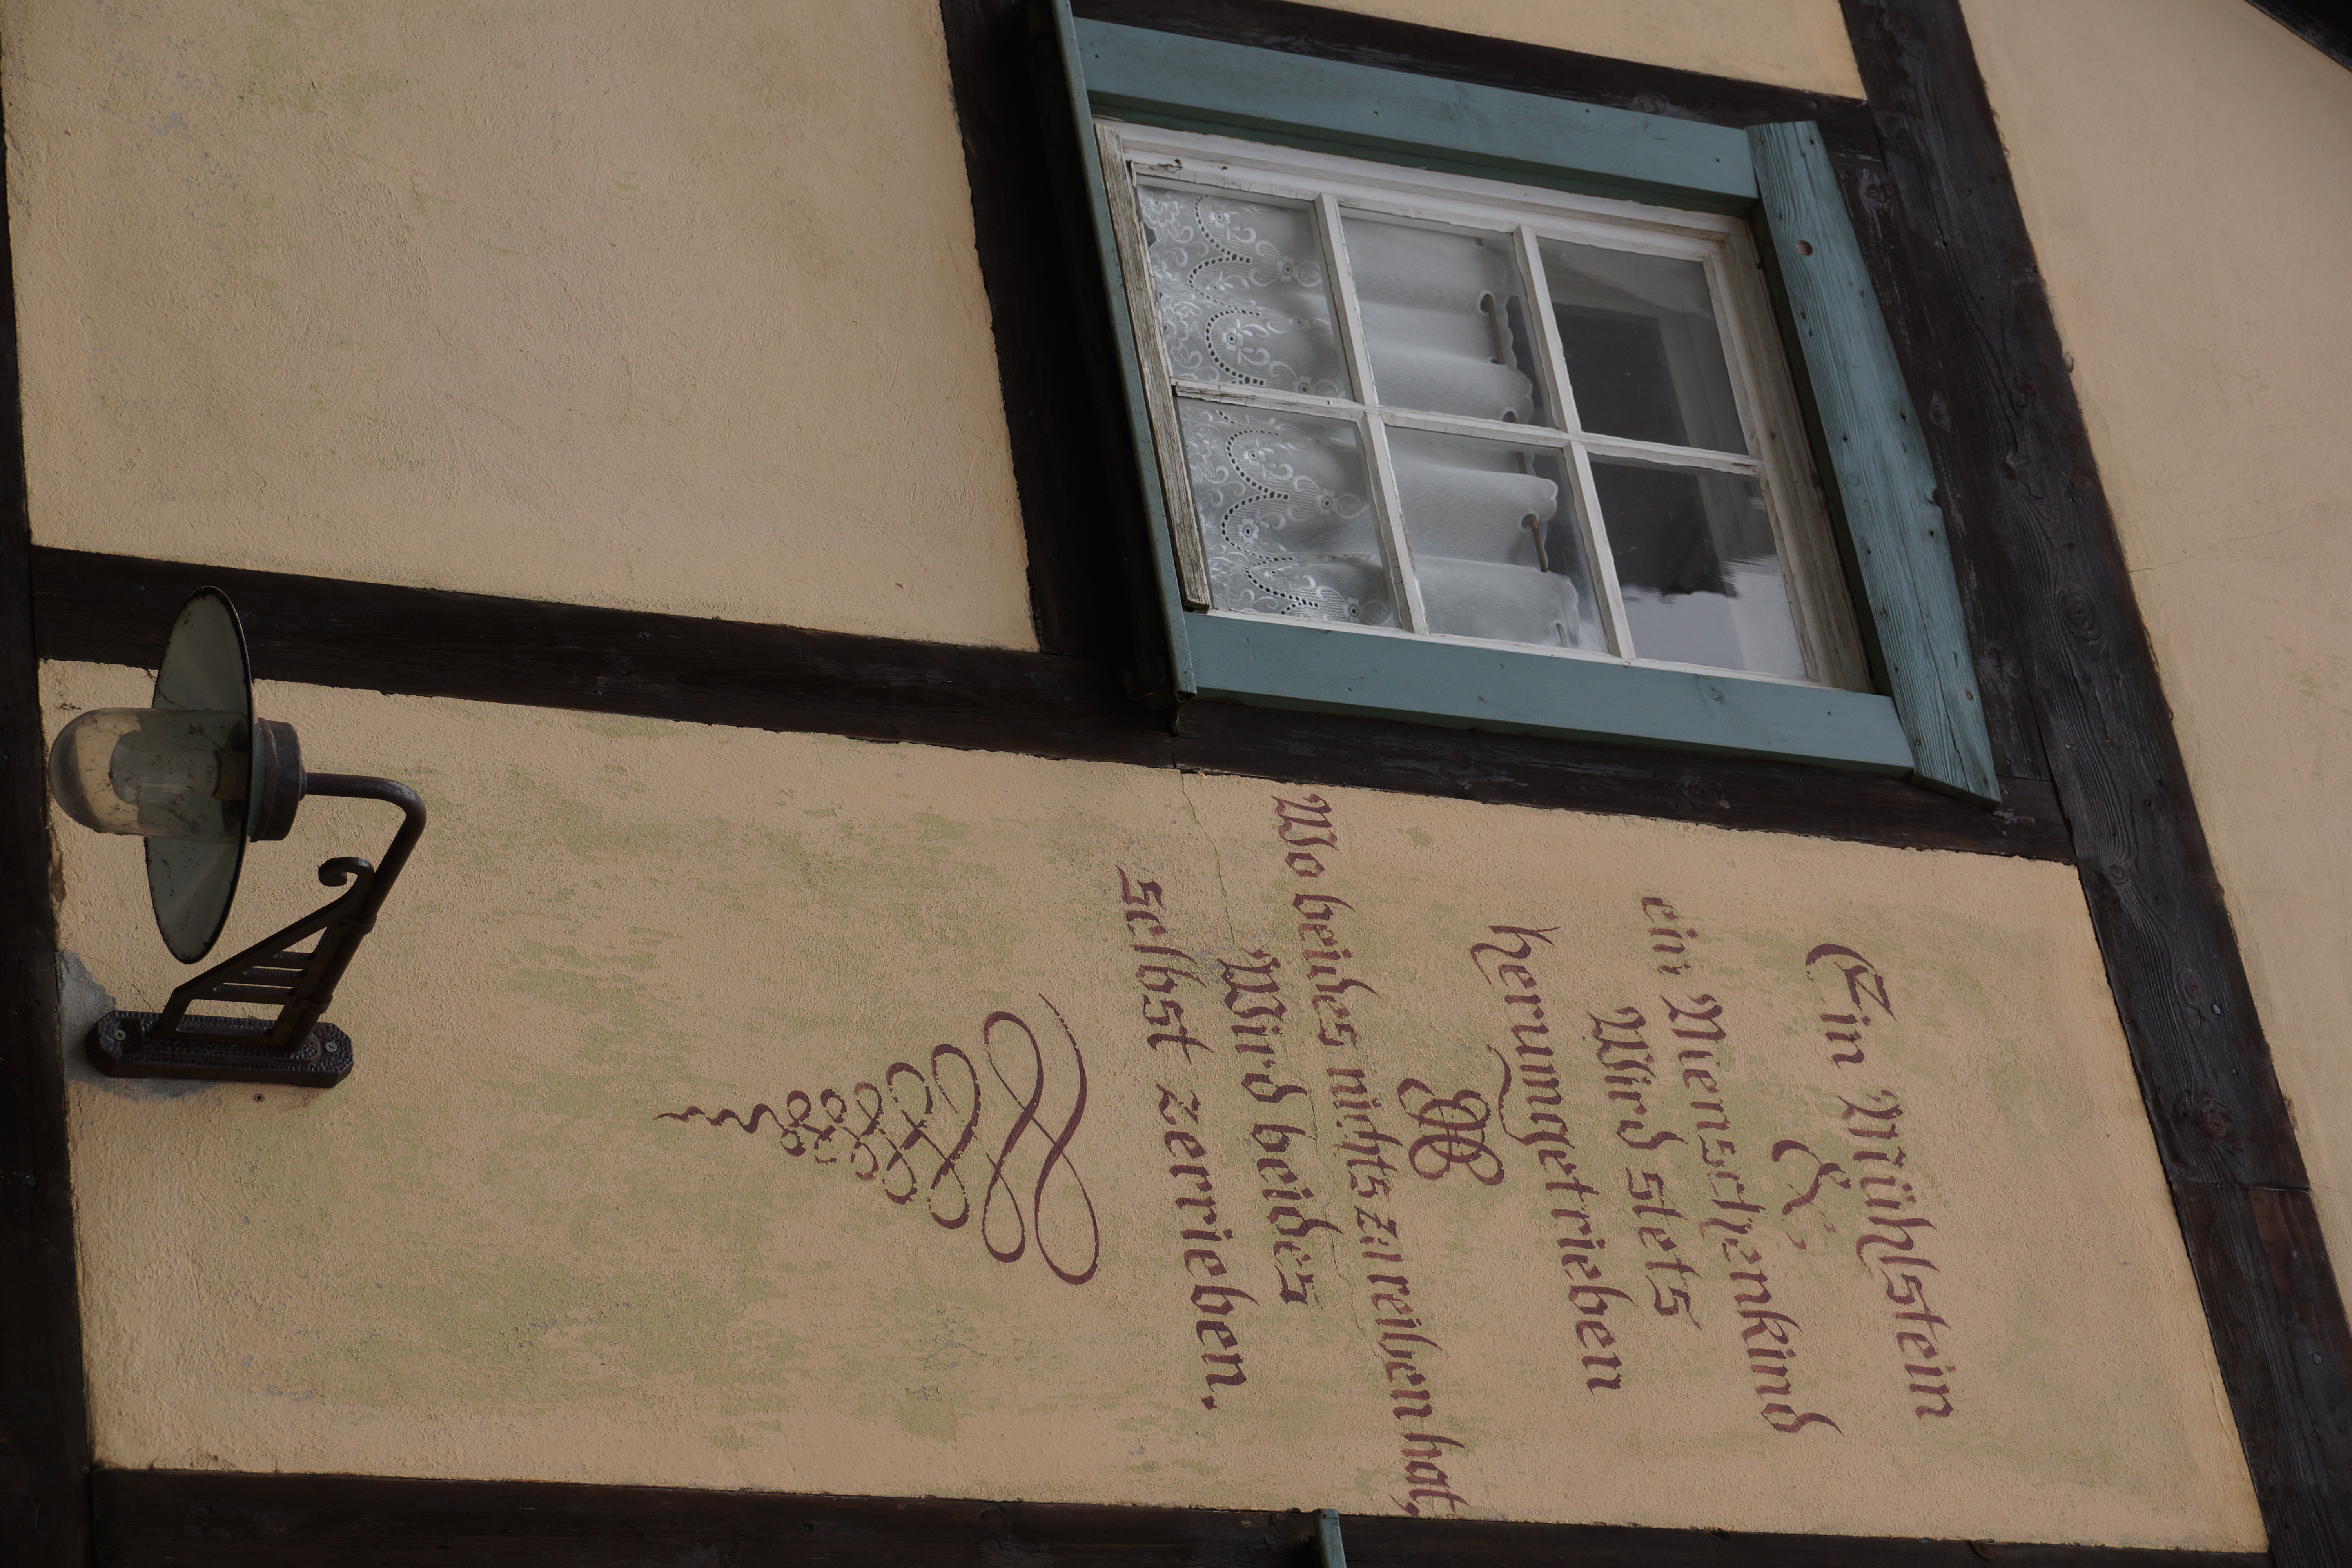 Ein Mühlstein
&
ein Menschenkind
Wird stets
herumgetrieben
Wo beides nichts zu reiben hat,
Wird beides
selbst zerrieben.